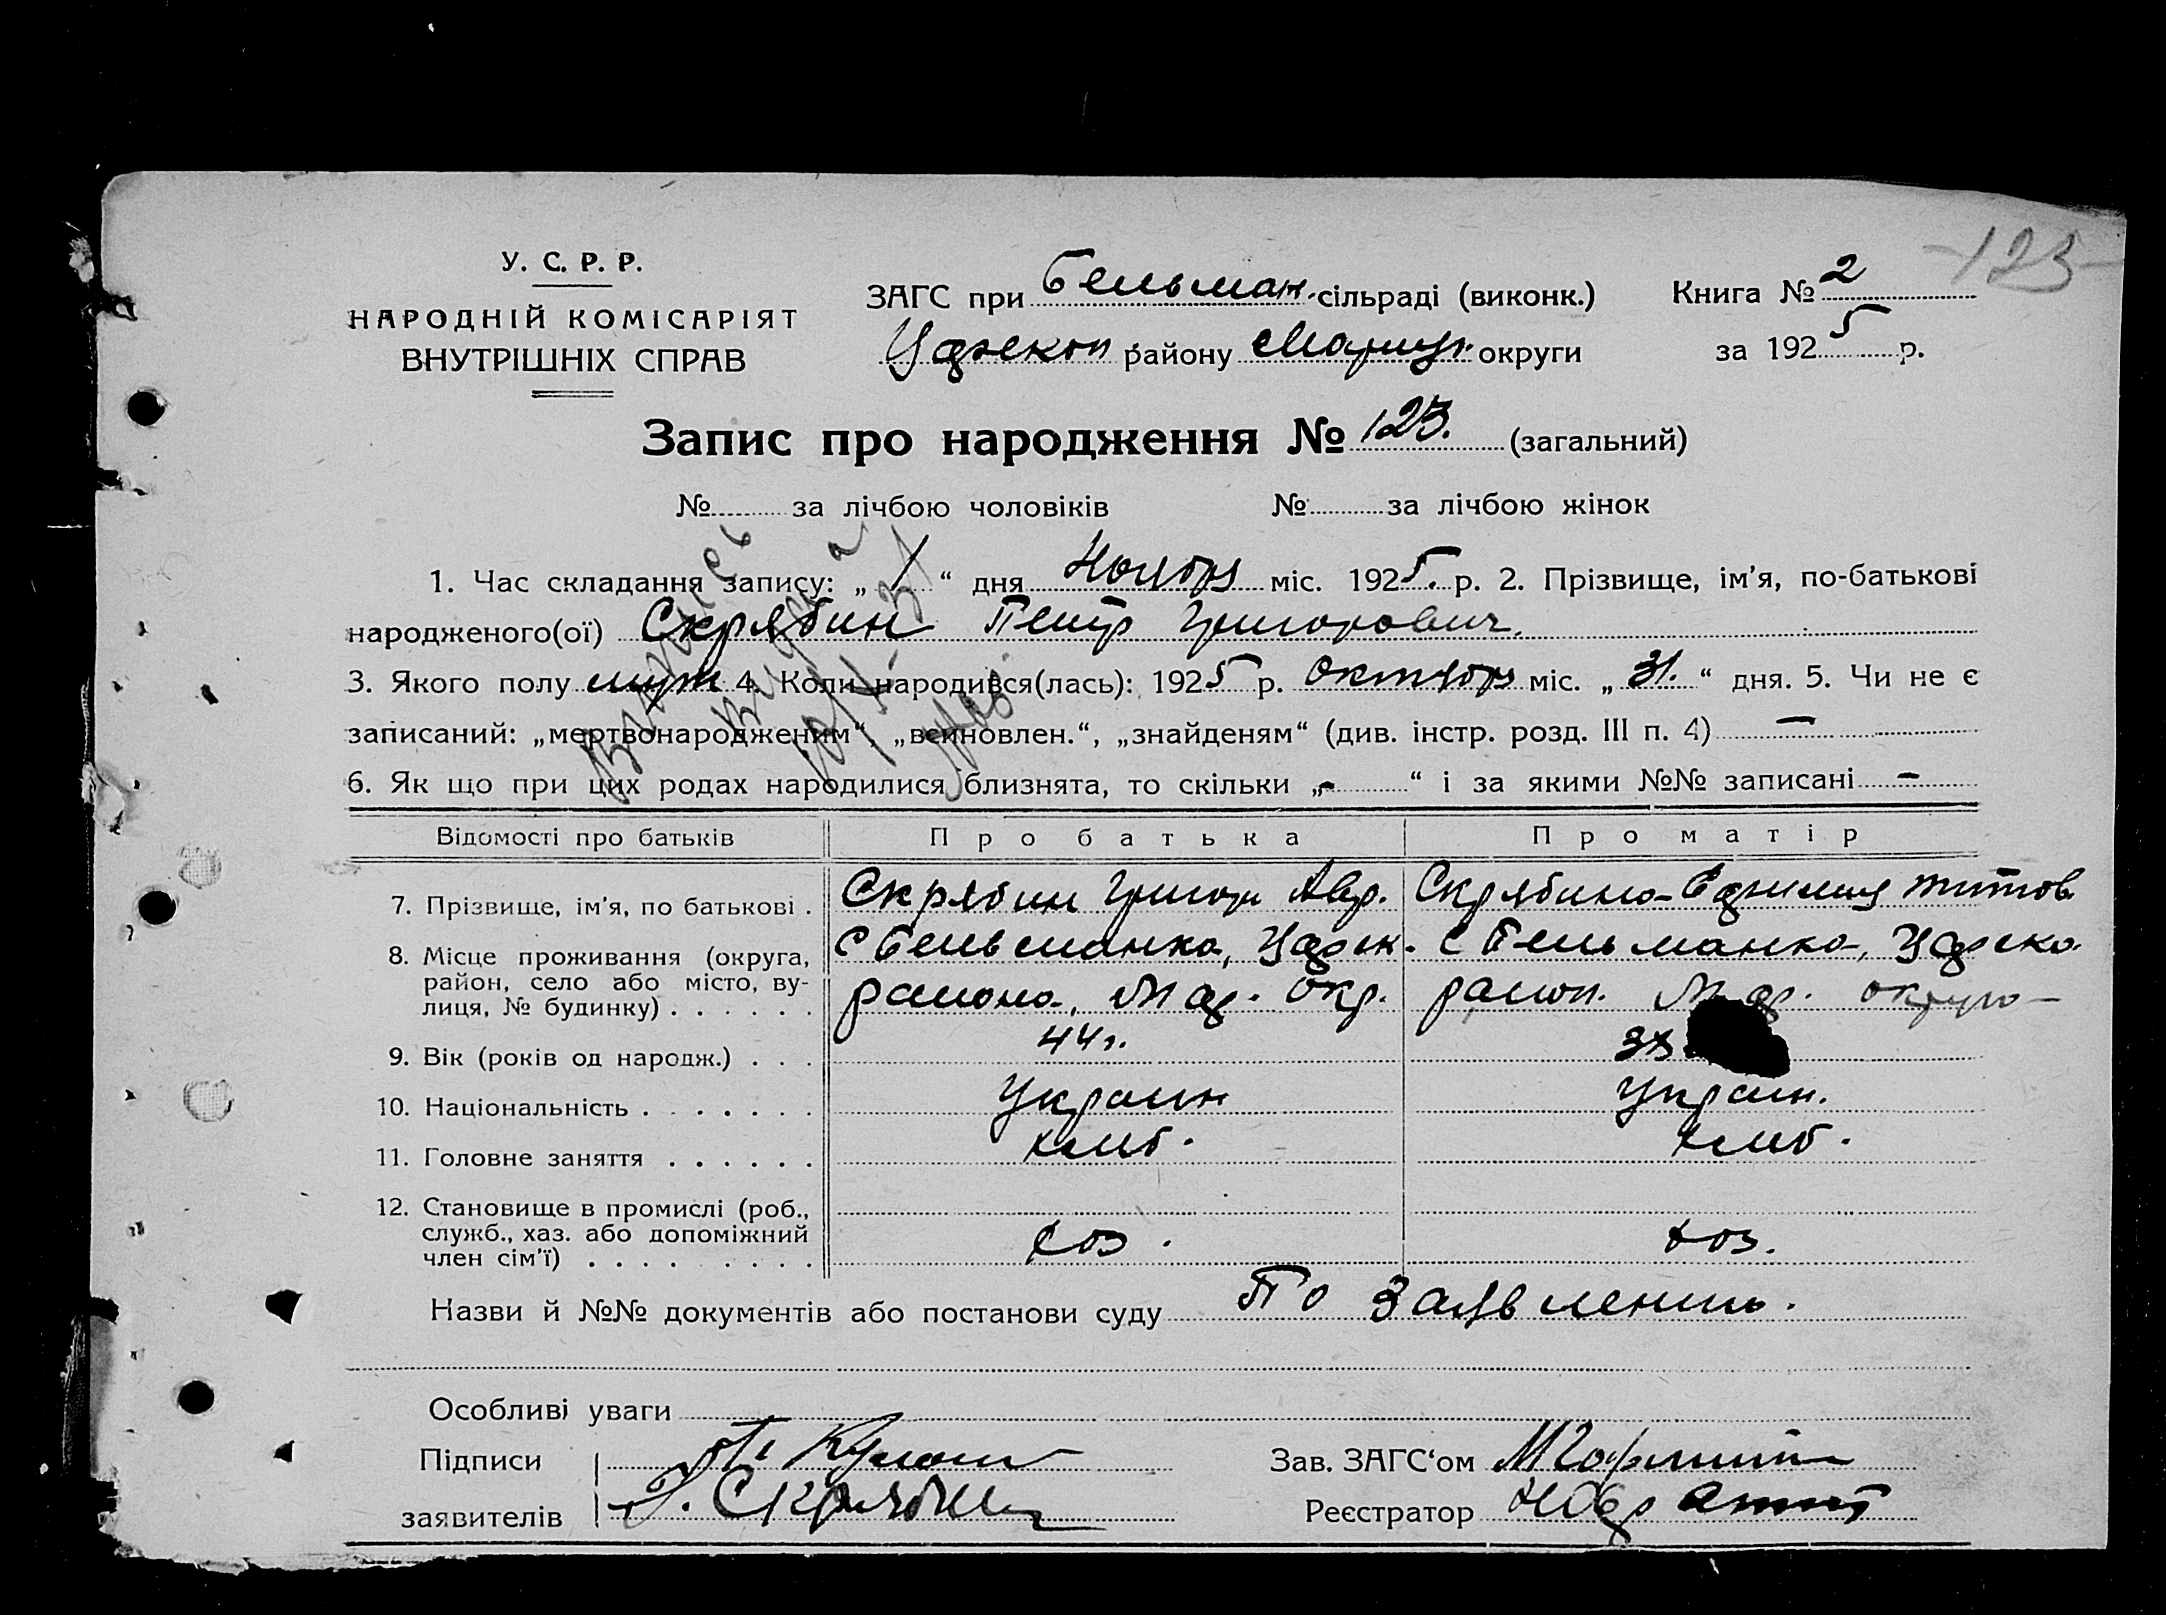 -123-
У. С. Р. Р.
НАРОДНІЙ КОМІСАРІЯТ
ВНУТРІШНІХ СПРАВ
ЗАГС при Бельман. сільраді (виконк.)
района Мариуп. округи
Книга № 2
за 1925 р.
Запис про народження № 123. (загальний)
№ за лічбою чоловіків № за лічбою жінок
1. Час складання запису: „ 1 “ дня Ноября міс. 1925. р. 2. Прізвище, ім'я, по-батькові
народженого(ої) Скрябин Петр Григорович.
3. Якого полу муж 4. Коли народився(лась): 1925 р. Октября міс. „ 31. “ дня. 5. Чи не є
записаний: „мертвонародженим“, „всиновлен.“, „знайденям“ (див. інстр. розд. III п. 4) —
6. Як що при цих родах народилися близнята, то скільки „ - “ і за якими №№ записані -
Відомості про батьків Про батька Про матір
7. Прізвище, ім'я, по батькові . Скрябин Григори Авр. Скрябина Титов.
8. Місце проживання (округа, район, село або місто, ву-лиця, № будинку) . . . . . .
с Бельманка, с Бельманка,
района, Мар. Окр. район. Мар. округа
9. Вік (років од народж.) . . . 44 г.
10. Національність . . . . . . . Украин Украин.
11. Головне заняття . . . . . . хлиб. хлиб.
12. Становище в промислі (роб., служб., хаз. або допоміжний член сім'ї) . . . . . . . . хоз. хоз.
Назви й №№ документів або постанови суду По Заявлению.
Особливі уваги
Підписи
заявителів Скрябин
Зав. ЗАГС‘ом
Реєстратор